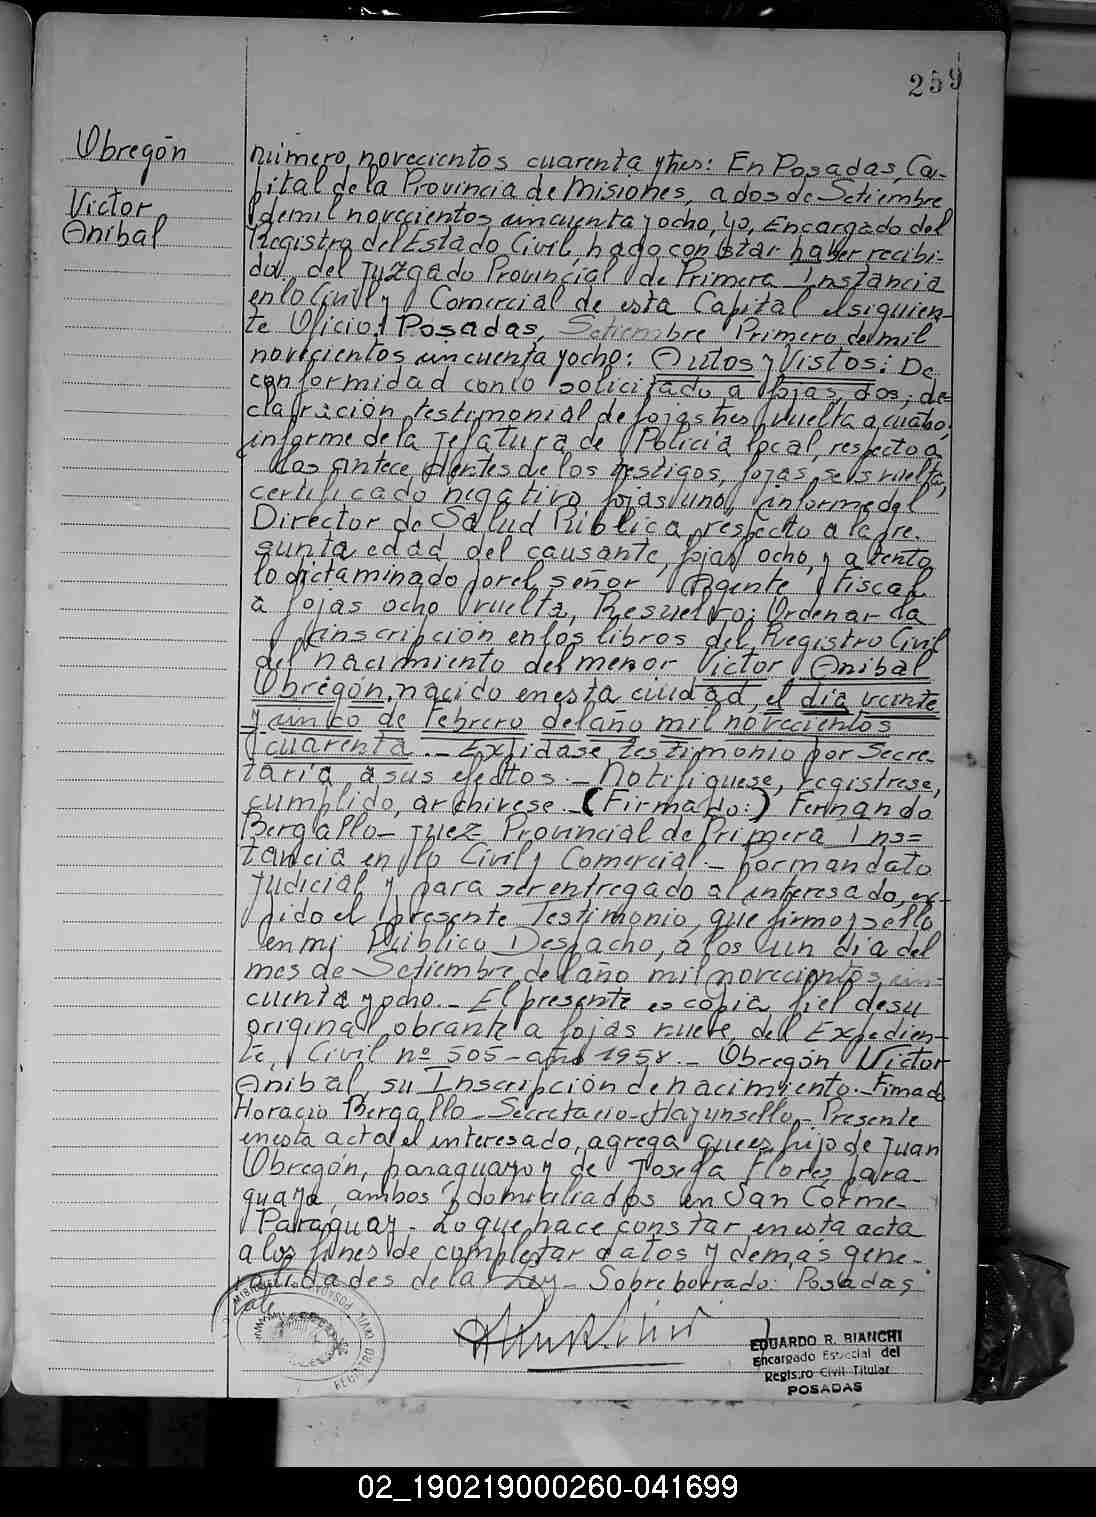 259
Obregón
Victor
Anibal
número novecientos cuarenta y tres: En Posadas, Ca-
pital de la Provincia de Misiones, a dos de Setiembre
de mil novecientos cincuenta y ocho, yo, Encargado del
Registro del Estado Civil, hago constar haber recibi-
do, del Juzgado Provincial de Primera Instancia
en lo Civil y Comercial de esta Capital el siguien-
te Oficio: Posadas, Setiembre Primero de mil
novecientos cincuenta y ocho: Autos y Vistos: De
conformidad con lo solicitado a fojas dos, de-
claración testimonial de fojas tres vuelta a cuatro,
informe de la Jefatura de Policia local, respecto a
los antecedentes de los testigos, fojas seis vuelta,
certificado negativo fojas uno, informe del
Director de Salud Pública respecto a la pre-
sunta edad del causante, fojas ocho, y atento
lo dictaminado por el señor Agente Fiscal
a fojas ocho vuelta, Resuelvo: Ordenar la
inscripción en los libros del Registro Civil
del nacimiento del menor Victor Anibal
Obregón, nacido en esta ciudad, el dia veinte
y cinco de Febrero del año mil novecientos
cuarenta.- Expidase testimonio por Secre-
taría a sus efectos.- Notifiquese, registrese,
cumplido, archivese.- (Firmado:) Fernando
Bergallo- Juez Provincial de Primera Ins=
tancia en lo Civil y Comercial- Por mandato
Judicial y para ser entregado al interesado, ex-
pido el presente Testimonio, que firmo y sello
en mi Público Despacho, a los un dia del
mes de Setiembre del año mil novecientos cin-
cuenta y ocho.- El presente es copia fiel de su
original obrante a fojas nueve del Expedien-
te, Civil nº 505- año 1958.- Obregón Victor
Anibal su Inscripción de nacimiento.- Firmado
Horacio Bergallo- Secretario- Hay un sello- Presente
en esta acta el interesado, agrega que es hijo de Juan
Obregón, paraguayo y de Josefa Flores, para-
guaya, ambos domiciliados en San Corme-
Paraguay- Lo que hace constar en esta acta
a los fines de completar datos y demás gene-
ralidades de la Ley- Sobreborrado: Posadas,
Vale
EDUARDO R. BIANCHI
Encargado Especial del
Registro Civil Titular
POSADAS
02_190219000260-041699